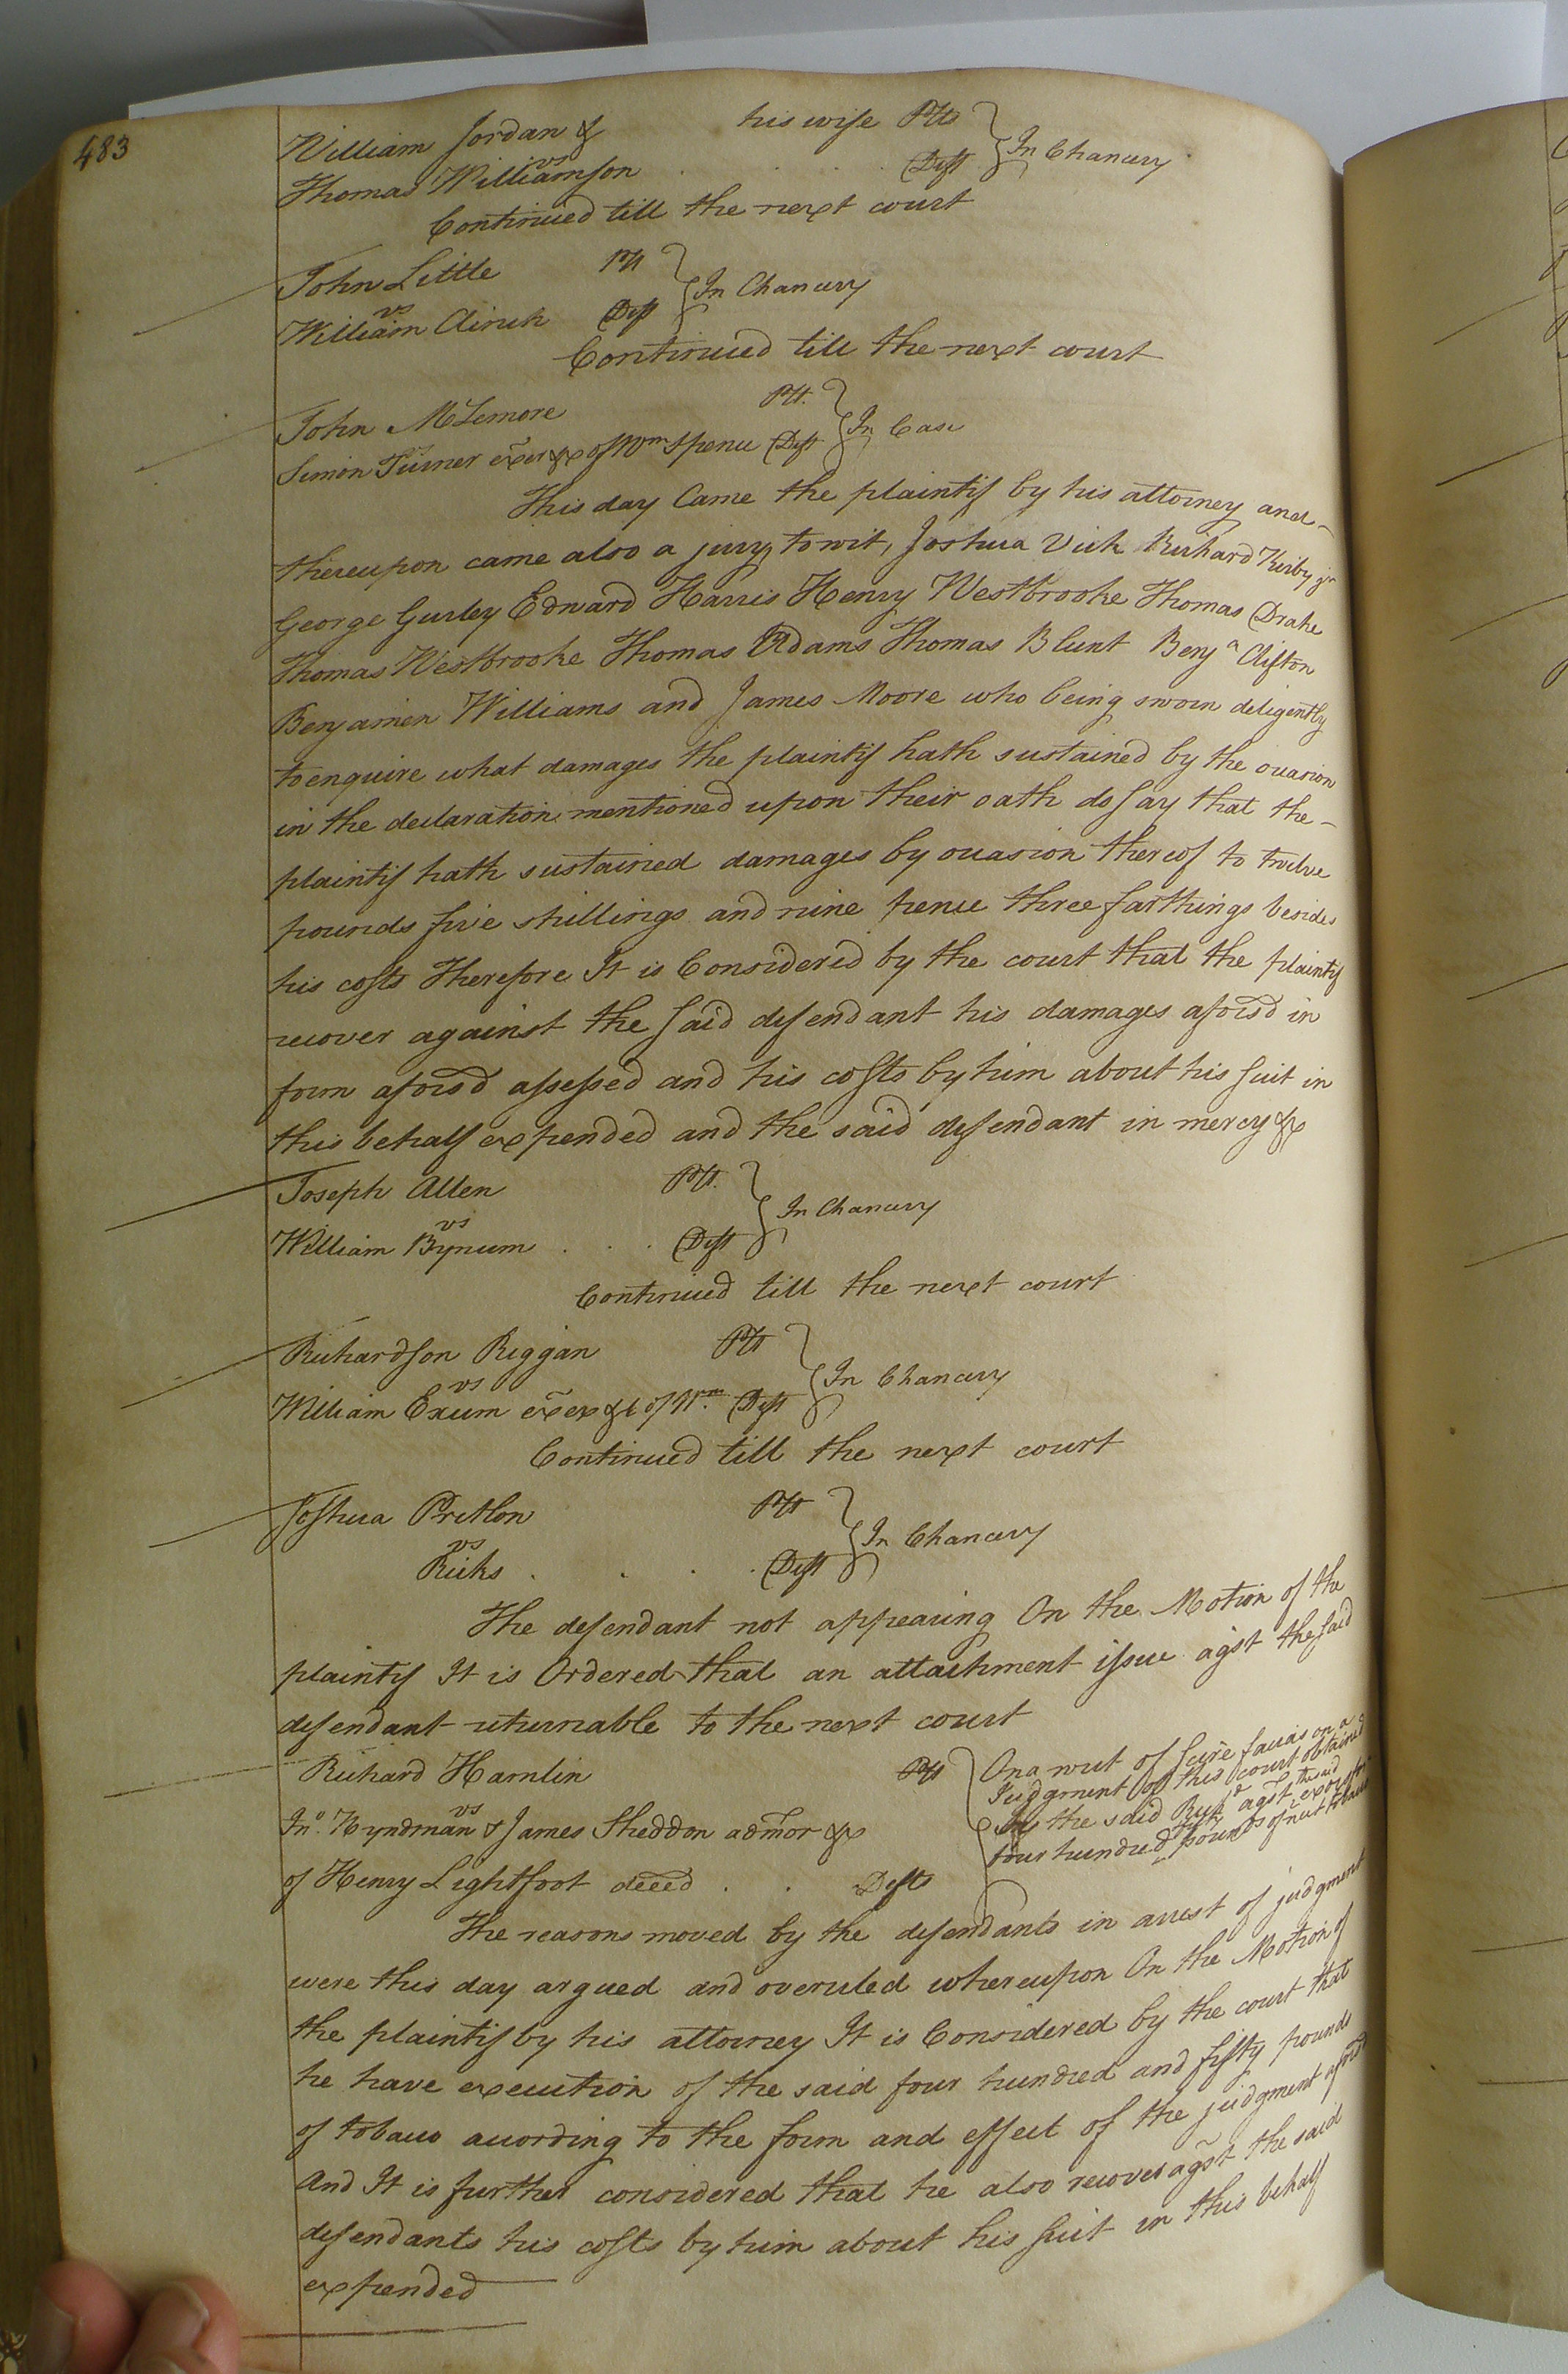 483
William Jordan & his wife Plts
vs } In Chancery
Thomas Williamson . . . Deft
Continued till the next court
John Little Plt
vs } In Chancery
William Clinch Deft
Continued till the next court
John McLemore Plt.
} In Case
Simon Turner exer &c of Wm Spence Deft
This day Came the plaintif by his attorney and
thereupon came also a jury, to wit, Joshua Vick Richard Kirby jr
George Gurley Edward Harris Henry Westbrooke Thomas Drake
Thomas Westbrooke Thomas Adams Thomas Blunt Benja Clifton
Benjamen Williams and James Moore who being sworn deligently
to enquire what damages the plaintif hath sustained by the occasion
in the declaration mentioned upon their oath do say that the
plaintif hath sustained damages by occasion thereof to twelve
pounds five shillings and nine pence three farthings besides
his costs Therefore It is Considered by the court that the plaintif
recover against the said defendant his damages aforsd in
form aforsd assessed and his costs by him about his suit in
this behalf expended and the said defendant in mercy &c
Joseph Allen Plt.
vs } In Chancery
William Bynum . . . Deft
Continued till the next court
Richardson Riggan Plt
vs } In Chancery
William Exum exer &c of Wm. Deft
Continued till the next court
Joshua Pretlon Plt
vs } In Chancery
Ricks . . . . Deft
The defendant not appearing On the Motion of the
plaintif It is Ordered that an attachment issue agst the said
defendant returnable to the next court
Richard Hamlin Plt
vs
Jno. Hyndman & James Sheddon admor &c
of Henry Lightfoot deced . . Defts
On a writ of scire facias on a
Judgment of this court obtained
by the said Richd agst the
four hundred pounds of nett tobacco
The reasons moved by the defendants in arrest of judgment
were this day argued and overuled whereupon On the Motion of
the plaintif by his attorney It is Considered by the court that
he have execution of the said four hundred and fifty pounds
of tobacco according to the form and effect of the judgment aforsd
And It is further considered that he also recover agst the said
defendants his costs by him about his suit in this behalf
expended